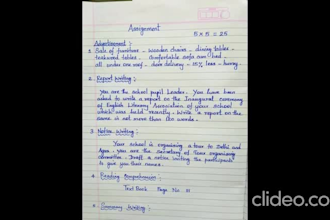 Assignment
5 x 5 = 25
Advertisement :
1 Sale of furniture - wooden chairs - dining tables -
textured tables - Comfortable sofa cum bed -
all under one roof - door delivery - 15% less - buying.
2 Report Writing :
You are the school pupil Leader. You have been
asked to write a report on the Inaugural ceremony
of English Literary Association of your school
which was held recently. Write a report on the
same in not more than 120 words.
3 Notice Writing :
Your school is organising a tour to Delhi and
Agra. You are the Secretary of tour organising
committee. Draft a notice inviting the participants
to give you their names.
4 Reading Comprehension :
Text Book Page No.
5 Summary Writing :
clideo.co